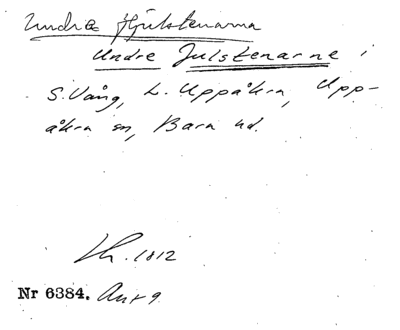 Undra Hjulstenarna
Undre Julstenarne i
S. Vång, L. Uppåkra, Upp-
åkra sn, Bara hd.
Lh. 1812
Nr 6384. Ant 9.